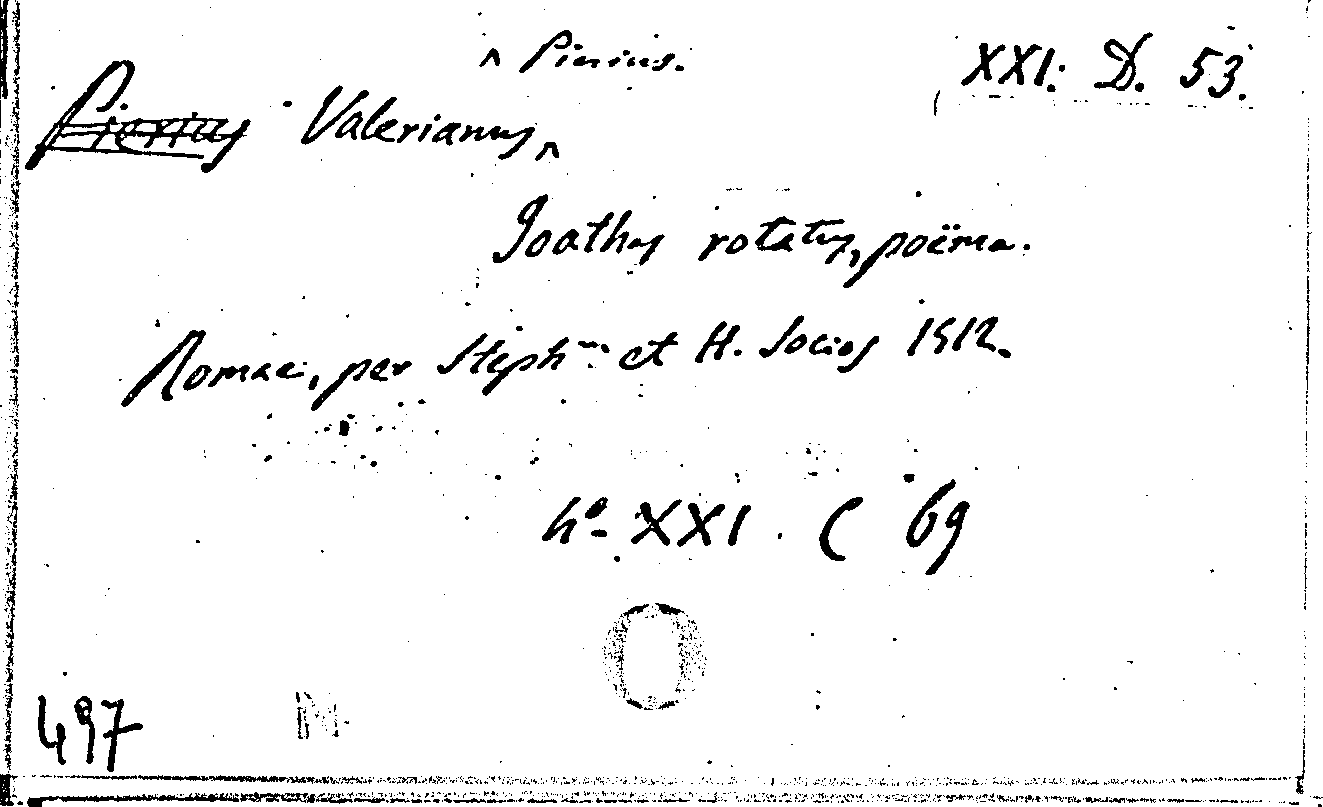 ^ Pierius.
XXI. D. 53.
Pierius Valerianus ^
Joathas rotatus, poëma.
Romae, per Steph^m et H. Socios 1512.
4º XXI. C 69
497
M